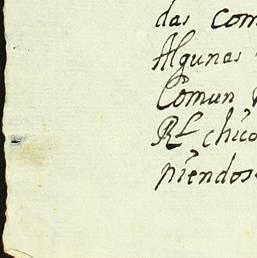 das com
Algunas
Comun
Rl chico
piendos